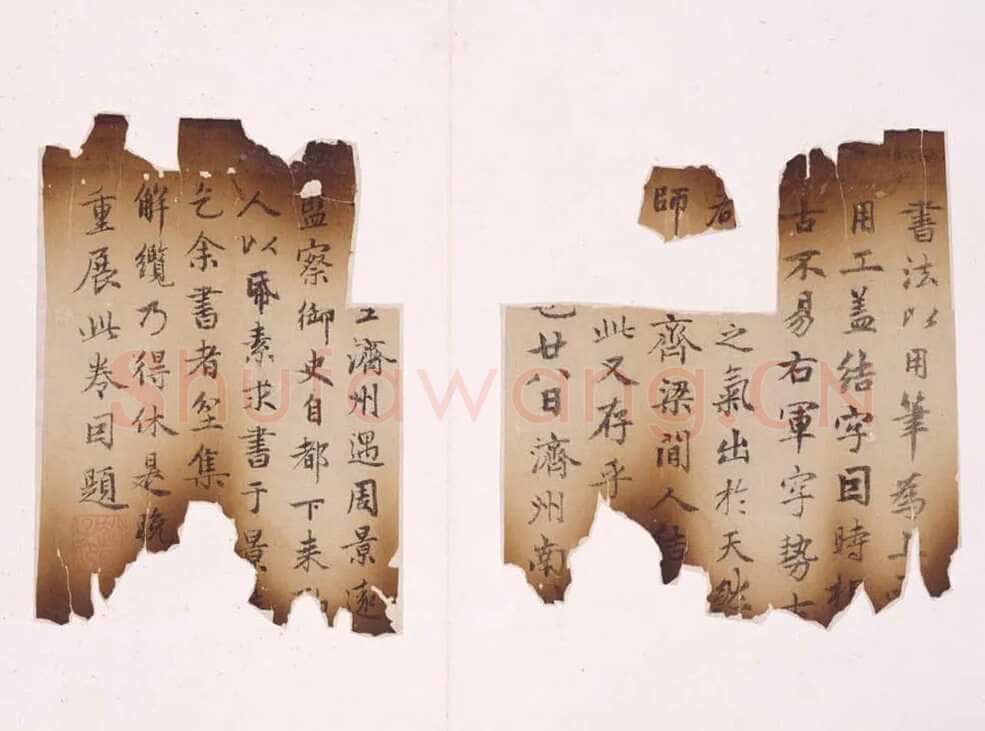 書法以用筆為上
用工盖結字因時
古不易右軍字勢古
之氣出於天
者齊梁間人結
師此又存乎
廿八日濟州南
濟州遇周景遠
監察御史自都下来
人以帋素求書于景
乞余書者坌集
解纜乃得休是晚
重展此卷因題
Shufawang.CN